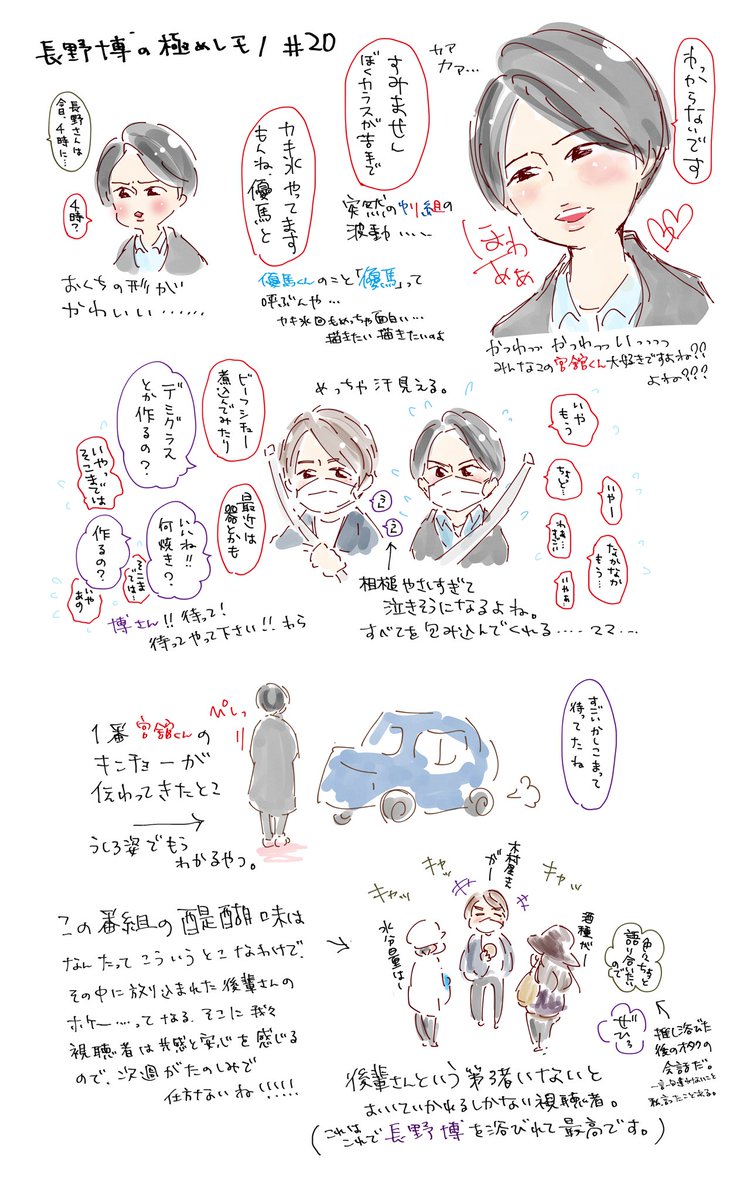 長野博の極めしモノ #20
長野さんは
今日、4時に…
4時?
おくちの形が
かわいい……
カキ氷やってます
もんね、優馬と
すみません
ぼくカラスが苦手で
カァ
カァ…
わっからないです
突然のやり組の
波動……
優馬くんのこと「優馬」って
呼ぶんや…
カキ氷回もめっちゃ面白い…
描きたい描きたいのよ
ほわ
ああ
かつわっつ かつわっつ いっつっつ
みんなこの宮舘くん大好きですよね??
よねの???
めっちゃ汗見える。
ビーフシチュー
煮込んでみたり
デミグラス
とか作るの?
いやっ
そこまでは
最近は
器とかも
いいね!!
何焼き?
作るの?
そこま
では…
いや
あの
うん
うん
いや
もう
ちょっと…
いやー
わぁ
なかなか
もう…
いやぁ…
博さん!!待って!
待ってやって下さい!!わら
相槌やさしすぎて
泣きそうになるよね。
すべてを包み込んでくれる……ママ…
1番宮舘くんの
キンチョーが
伝わってきたとこ
うしろ姿でもう
わかるやつ。
ぴしっ
すごいかしこまって
待ってたね
この番組の醍醐味は
なんたってこういうとこなわけで、
その中に放り込まれた後輩さんの
ポケー……ってなる、そこに我々
視聴者は共感と安心を感じる
ので、次週がたのしみで
仕方ないね!!!!!
キャッ
キャッ
キャッ
キャッ
木村屋さん
がー
水分量はー
酒種がー
色々ちょっと
語り合いたい
ので
ぜひぅ
推し浴びた
後のオタクの
会話だ。
一言一句違わないこと
私言ったことある。
後輩さんという第3者いないと
おいていかれるしかない視聴者。
(これは
これで長野博を浴びれて最高です。)